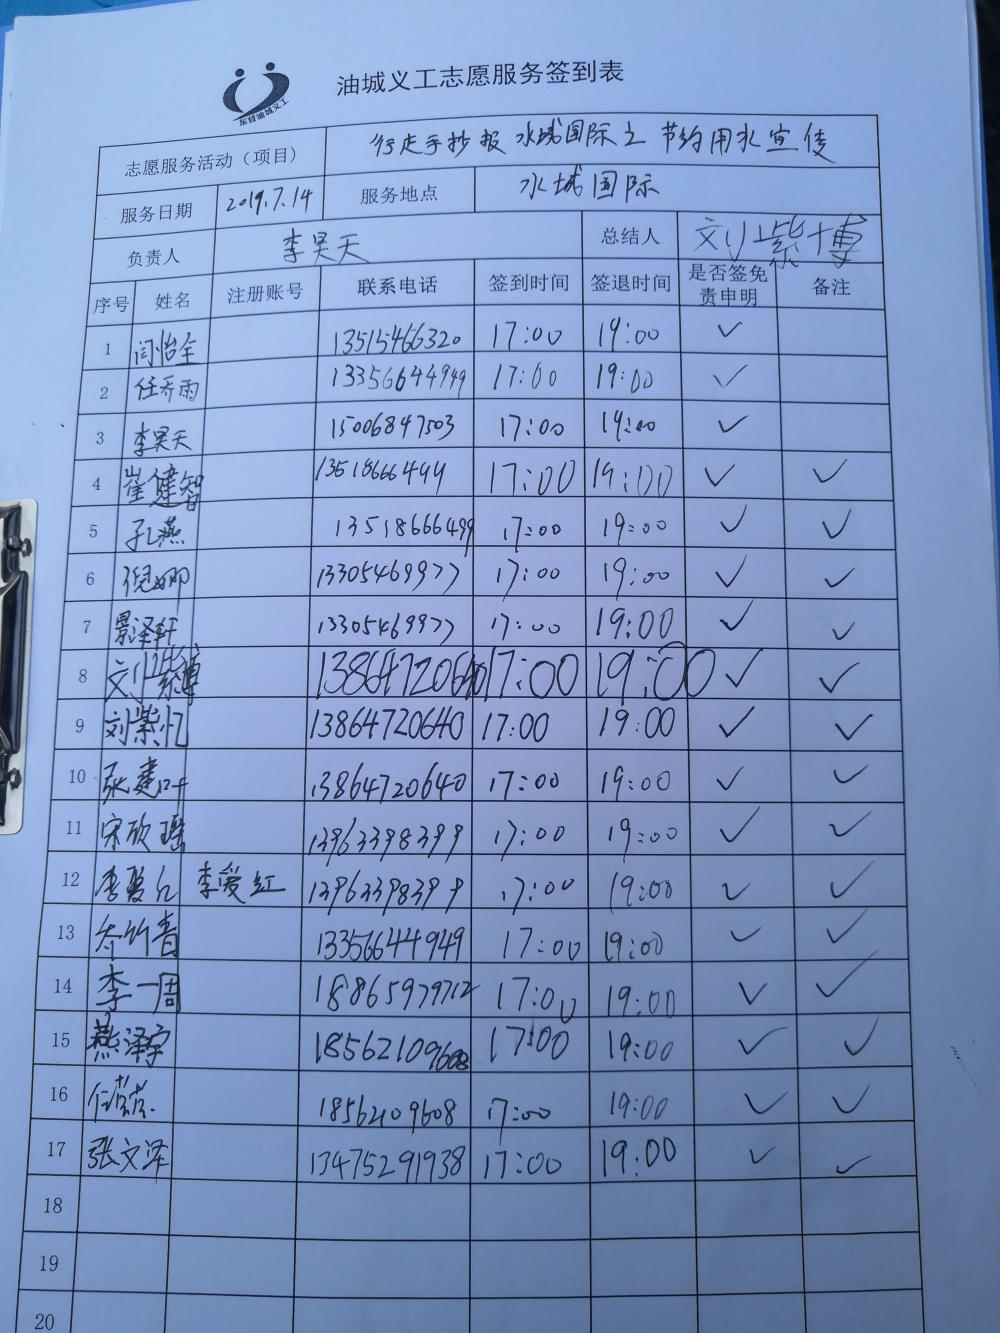 东营油城义工
油城义工志愿服务签到表
志愿服务活动（项目） 行走手抄报 水城国际之 节约用水宣传
服务日期 2019.7.14 服务地点 水城国际
负责人 李昊天 总结人 刘紫博
序号 姓名 注册账号 联系电话 签到时间 签退时间 是否签免责申明 备注
1 闫怡全 13515466320 17:00 19:00 ✓
2 任乔雨 13356644949 17:00 19:00 ✓
3 李昊天 15006847503 17:00 19:00 ✓
4 崔健智 13518666499 17:00 19:00 ✓ ✓
5 孔燕 13518666499 17:00 19:00 ✓ ✓
6 倪娜 13305469977 17:00 19:00 ✓ ✓
7 景泽轩 13305469977 17:00 19:00 ✓ ✓
8 刘紫博 13864720640 17:00 19:00 ✓ ✓
9 刘紫忆 13864720640 17:00 19:00 ✓ ✓
10 张建叶 13864720640 17:00 19:00 ✓ ✓
11 宋欣瑶 13963398399 17:00 19:00 ✓ ✓
12 李爱红 李爱红 13963398399 17:00 19:00 ✓ ✓
13 竹青 13356644949 17:00 19:00 ✓ ✓
14 李一周 18865979712 17:00 19:00 ✓ ✓
15 燕泽宇 18562109608 17:00 19:00 ✓ ✓
16 任芸芸 18562109608 17:00 19:00 ✓ ✓
17 张文泽 13475291938 17:00 19:00 ✓ ✓
18
19
20